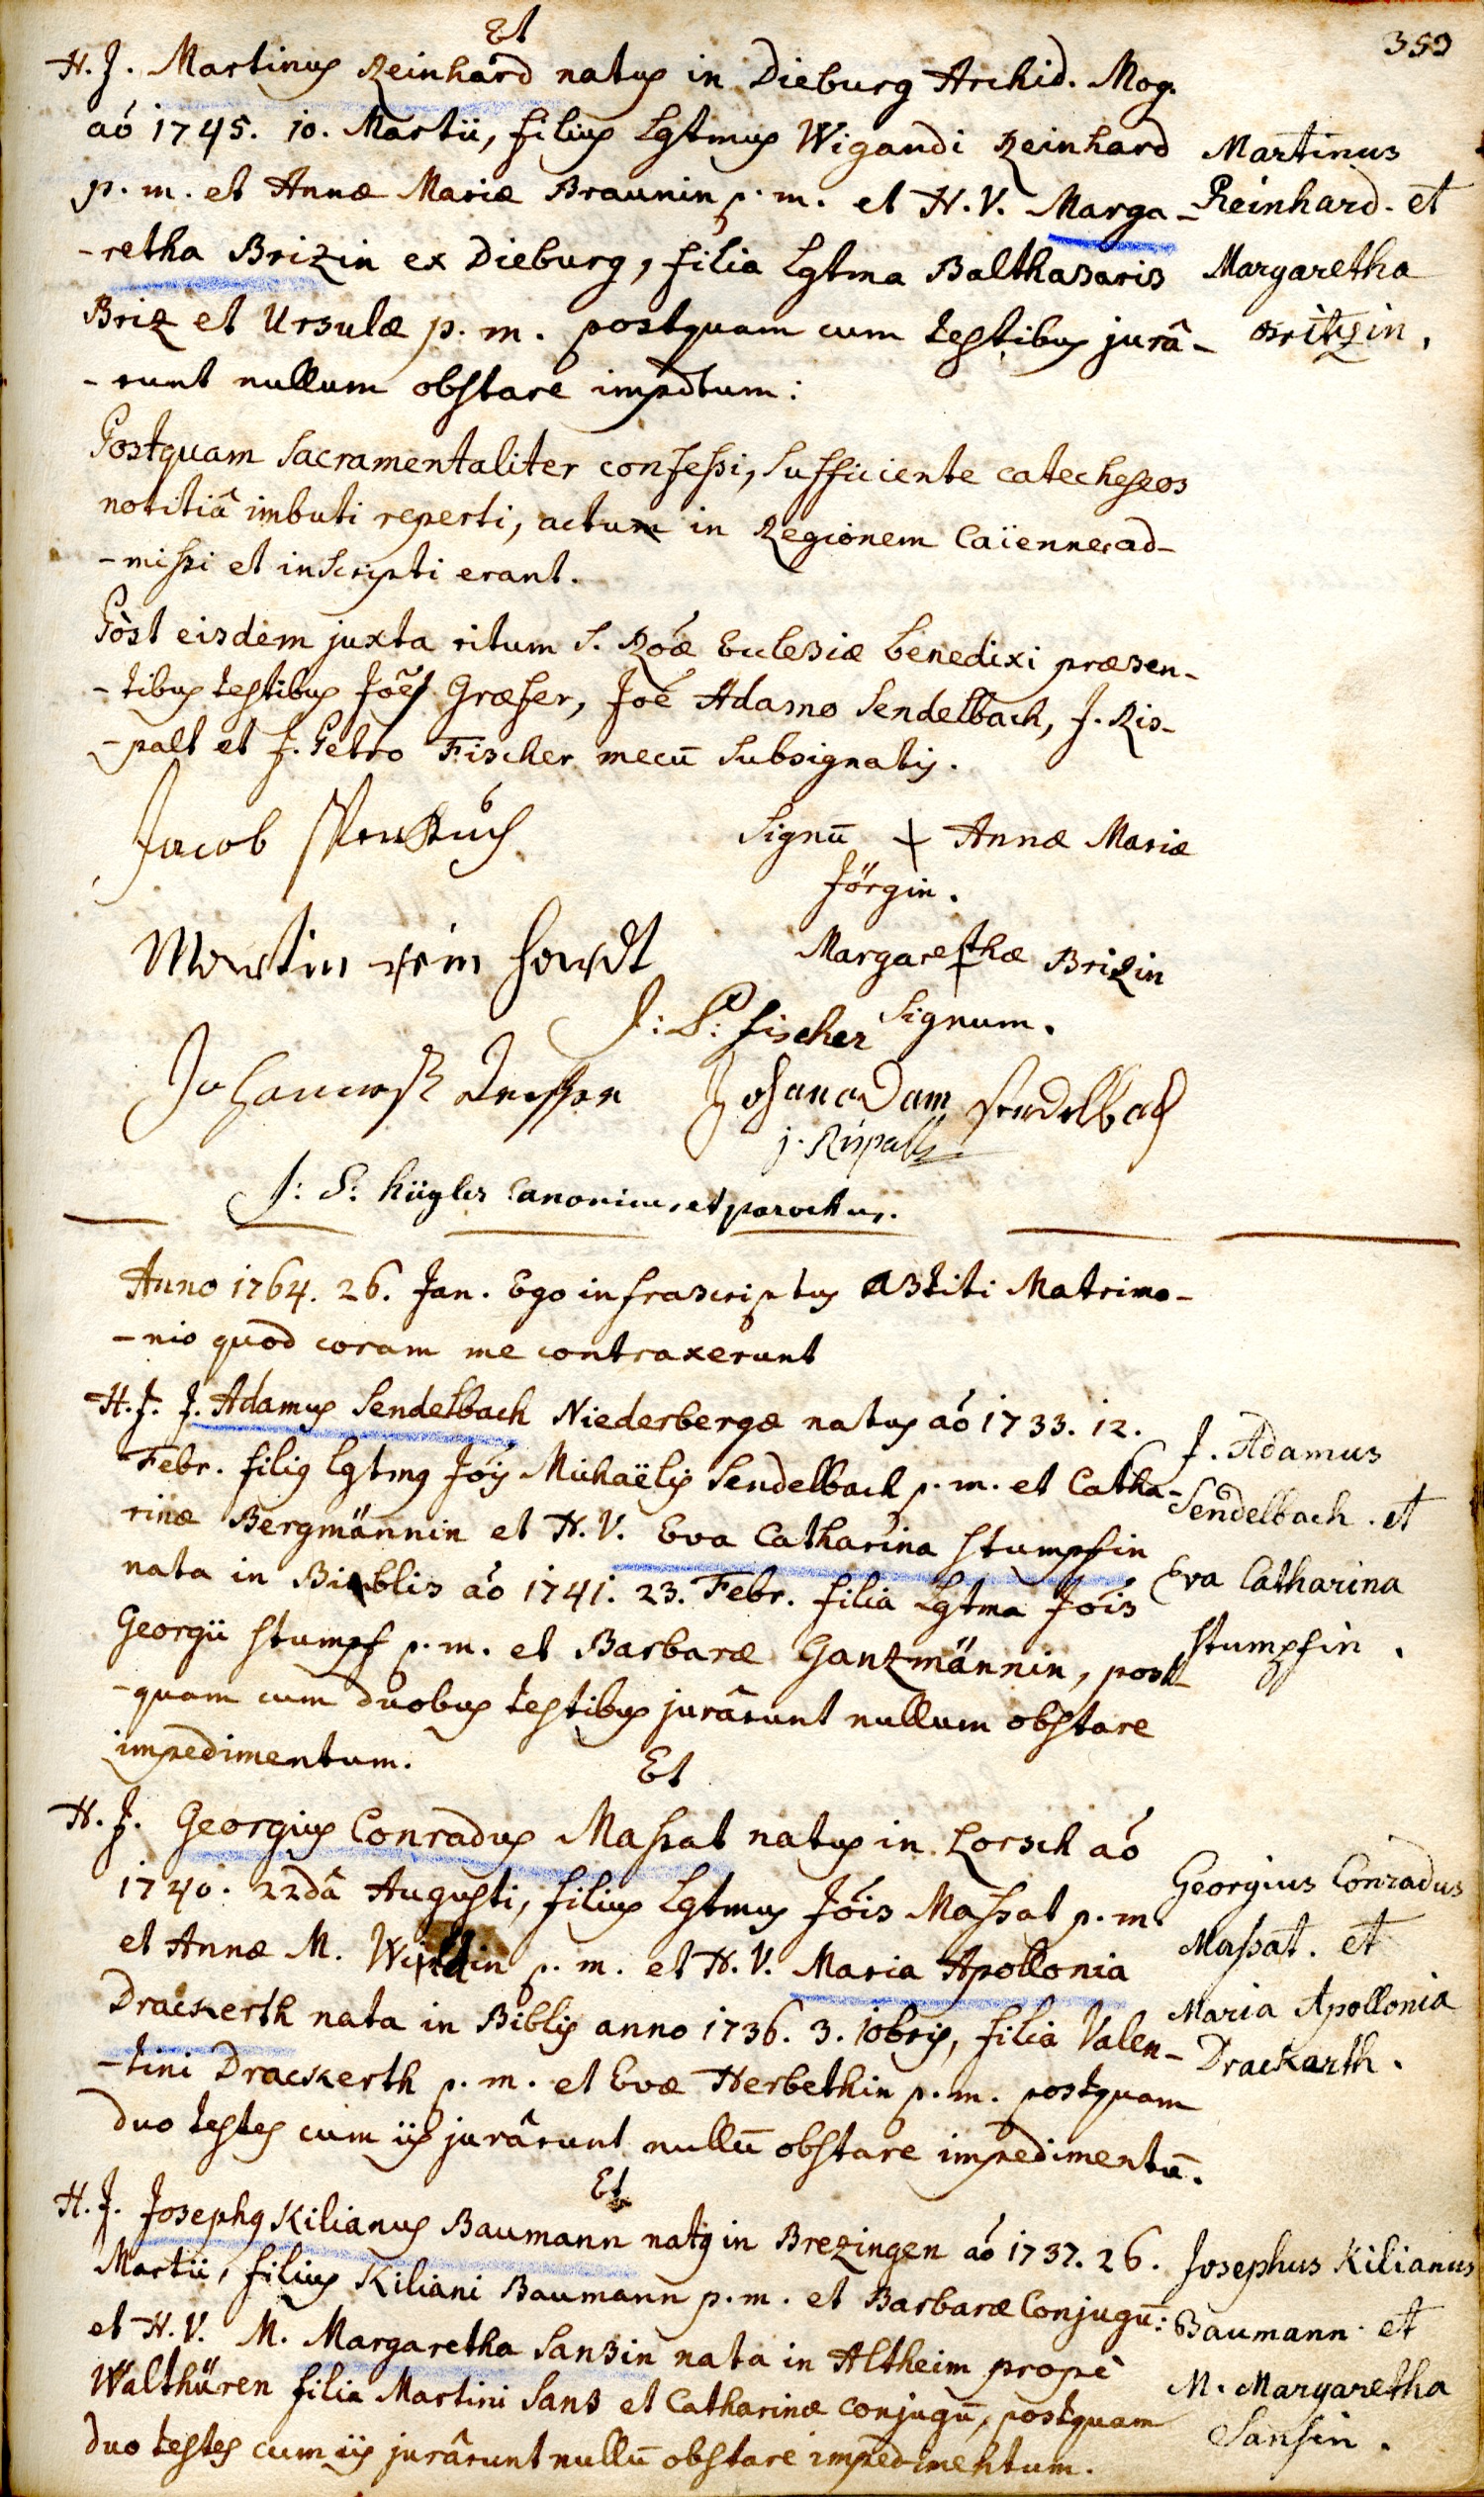 359
Et
H. J. Martinus Reinhard natus in Dieburg Archid. Mog.
aó 1745. 10. Martii, filius Lgtmus Wigandi Reinhard
p. m. et Annæ Mariæ Braunin p. m. et H. V. Marga-
-retha Brizin ex Dieburg, filia Lgtma Balthasaris
Briz et Ursulæ p. m. postquam cum testibus jurâ-
-runt nullum obstare impdtum:
Martinus
Reinhard. et
Margaretha
Britzin.
Postquam Sacramentaliter confessi, Sufficiente catecheseos
notitiâ imbuti reperti, actum in Regionem Caïennec ad-
-missi et inscripti erant.
Pòst eisdem juxta ritum S. Róæ Ecclesiæ benedixi præsen-
-tibus testibus Joē Græser, Joē Adamo Sendelbach, J. Ris-
-palt et J. Petro Fischer mecū Subsignatis.
Jacob
Signū + Annæ Mariæ
Jörgin.
Martin rein hardt
Margarethæ Brizin
Signum.
J: P: fischer
Johannes
Johan adam sendelbach
j. Rispalt
J: S: Kügler Canonicus et parochus.
Anno 1764. 26. Jan. Ego infrascriptus astiti Matrimo-
-nio quod coram me contraxerunt
H. J. J. Adamus Sendelbach Niederbergæ natus aó 1733. 12.
Febr. filig lgtmg Jóis Michaëlis Sendelbach p. m. et Catha-
rinæ Bergmännin et H. V. Eva Catharina Stumpfin
nata in Biblis aó 1741. 23. Febr. filia Lgtma Jóis
Georgii Stumpf p. m. et Barbaræ Ganzmännin, post
-quam cum duobus testibus jurârunt nullum obstare
impedimentum.
J. Adamus
Sendelbach. et
Eva Catharina
Stumpfin.
Et
H. J. Georgius Conradus Massat natus in Lorsch aó
1740. 22dâ Augusti, filius Lgtmus Jóis Massat p. m.
et Annæ M. p. m. et H. V. Maria Apollonia
Drackerth nata in Biblis anno 1736. 3. 10bris, filia Valen-
-tini Drackerth p. m. et Evæ Herbethin p. m. postquam
duo testes cum iis jurârunt nullū obstare impedimentū.
Georgius Conradus
Massat. et
Maria Apollonia
Drackarth.
Et
H. J. Josephg Kilianus Baumann natg in Brezingen aó 1737. 26.
Martii, filius Kiliani Baumann p. m. et Barbaræ Conjugū:
et H. V. M. Margaretha Sansin nata in Altheim propè
Walthüren filia Martini Sans et Catharinæ conjugū, postquam
duo testes cum iis jurârunt nullū obstare impedimentum.
Josephus Kilianus
Baumann. et
M. Margaretha
Sansin.